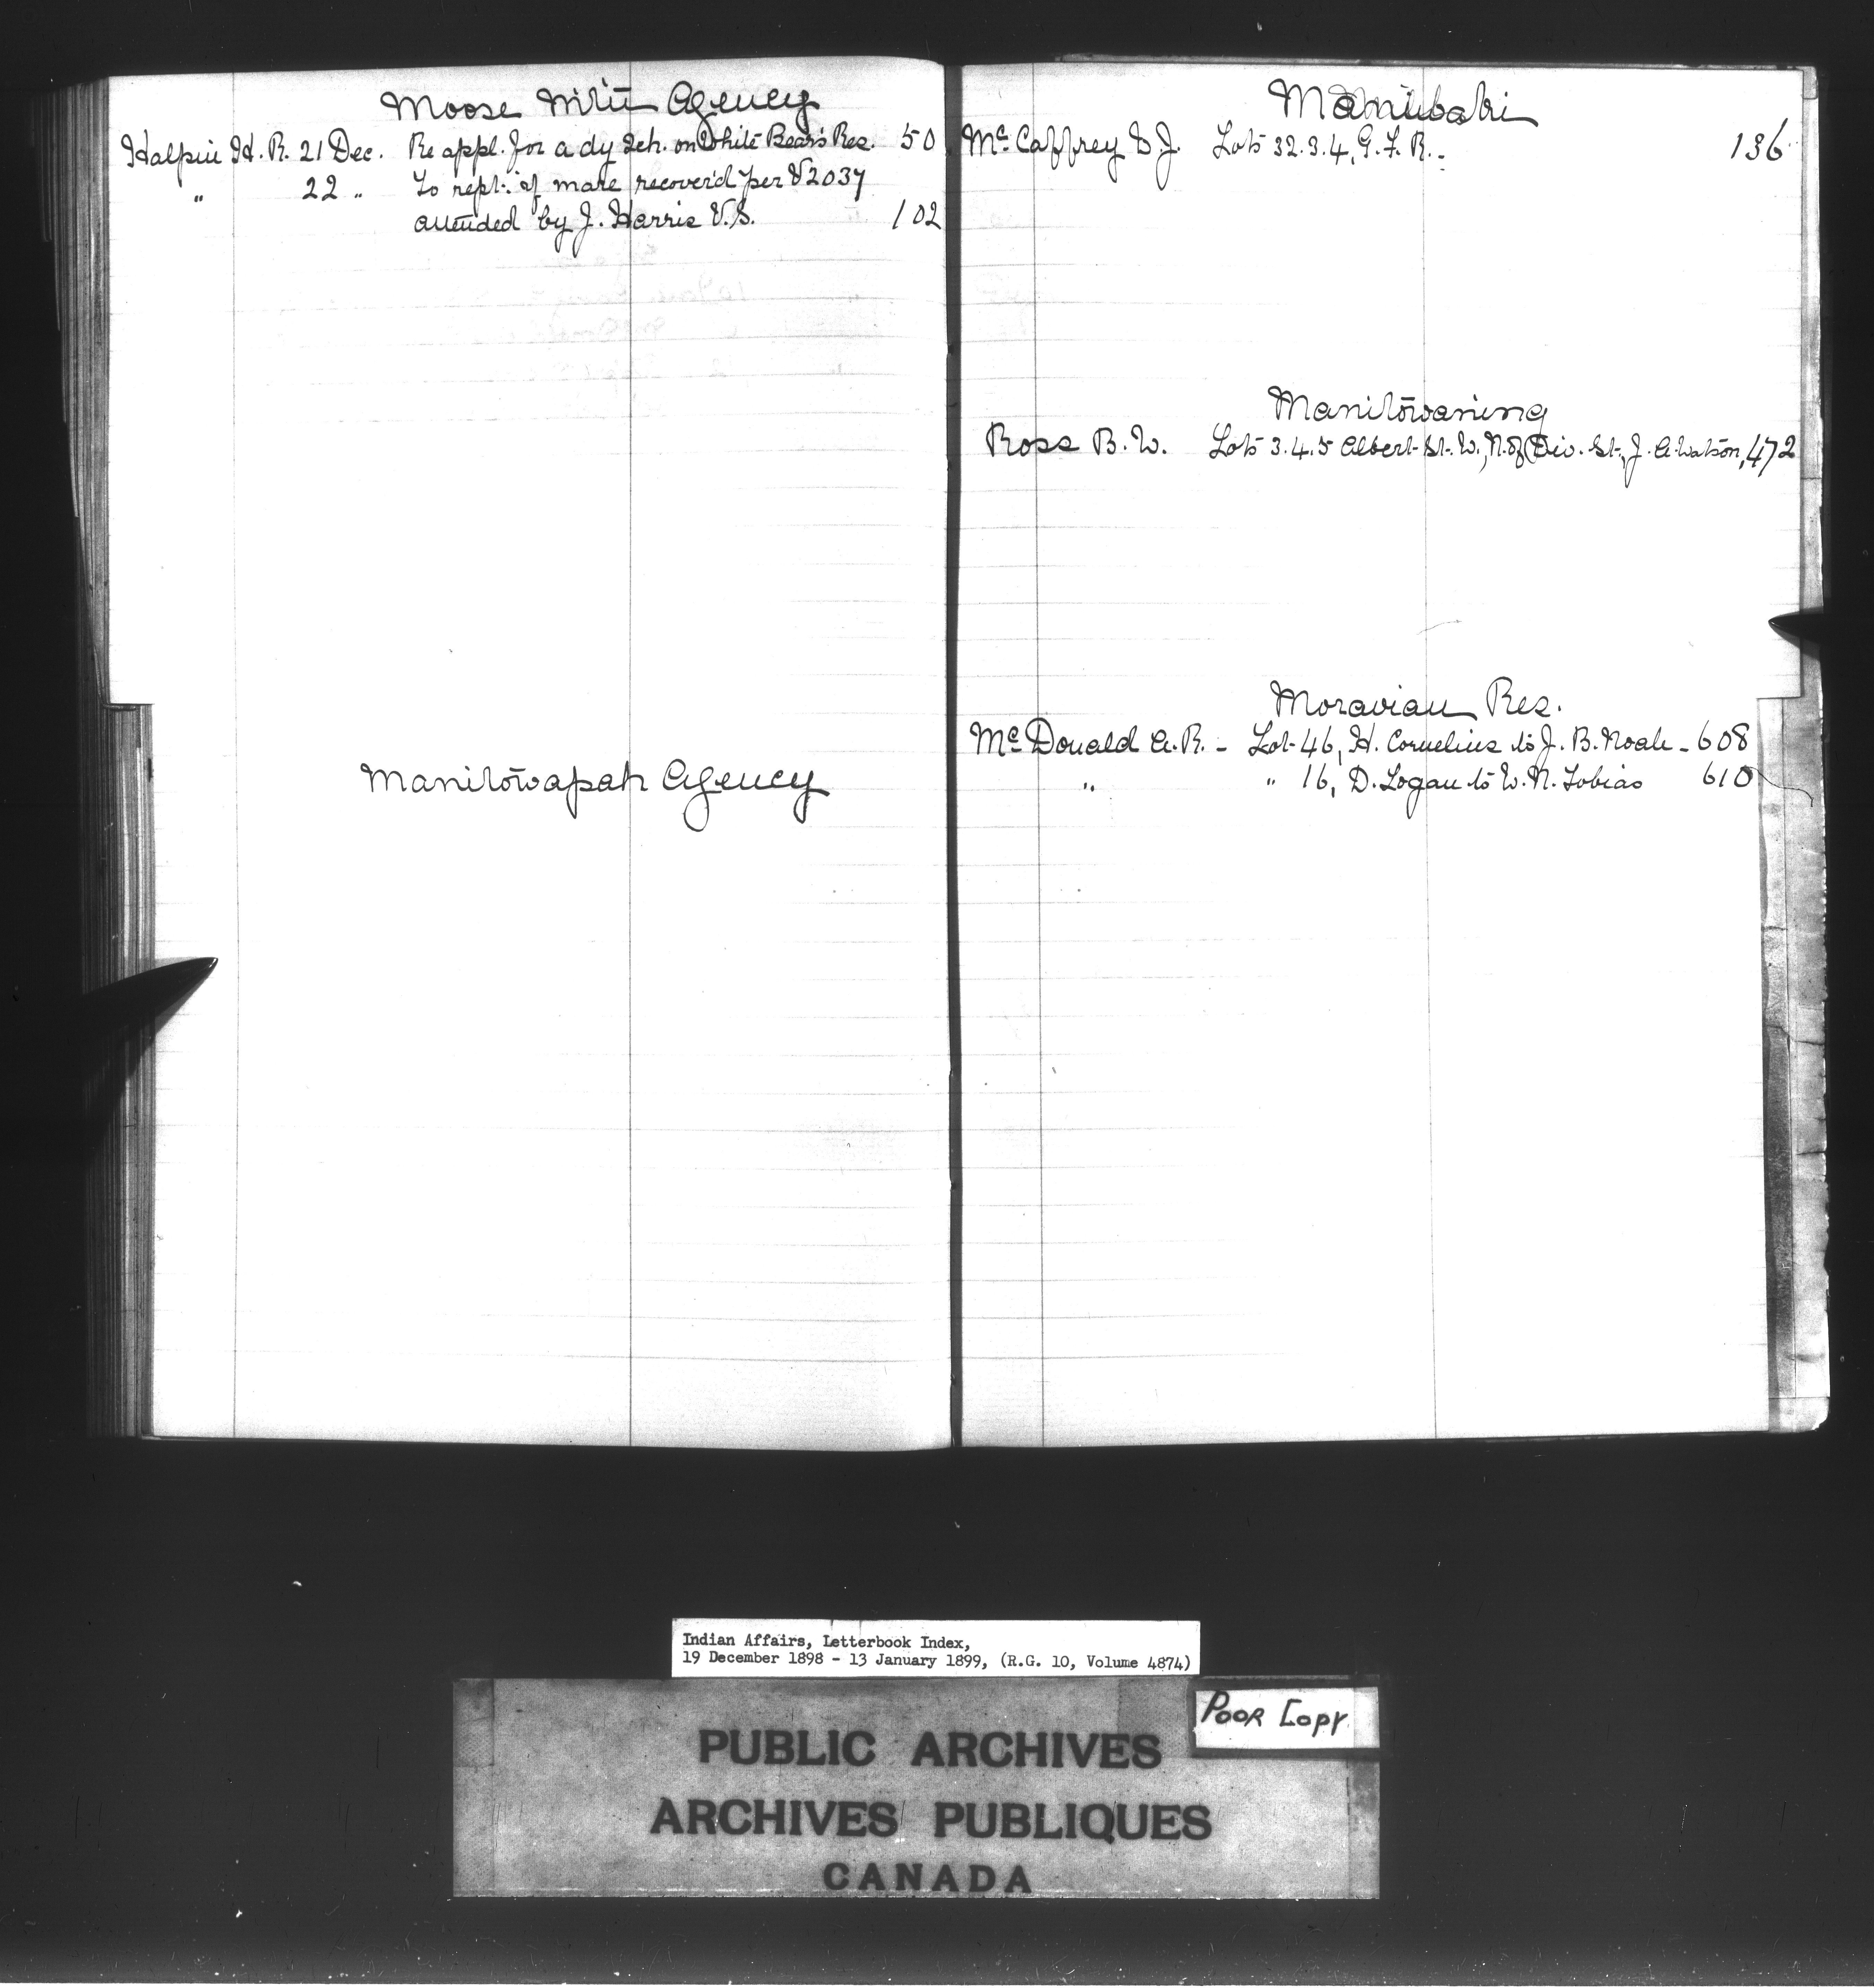 Moose Mtn Agency
Halpin H. R. 21 Dec. Re appl. for a dy Sch. on White Bear's Res. 50
" 22 " To rept. if mare recover'd per V2037
attended by J. Harris V.S. 102
Manitowapah Agency
Maniwaki
McCaffrey W J. Lots 32.3.4, G. F. R. - 136
Manitowaning
Ross B. W. Lots 3.4.5 Albert St. W, N. of Div. St., J. A. Watson, 472
Moravian Res.
McDonald A. R. - Lot 46, H. Cornelius to J. B. Noah - 608
" " 16, D. Logan to W. N. Tobias 610
Indian Affairs, Letterbook Index,
19 December 1898 - 13 January 1899, (R.G. 10, Volume 4874)
Poor Copy
PUBLIC ARCHIVES
ARCHIVES PUBLIQUES
CANADA